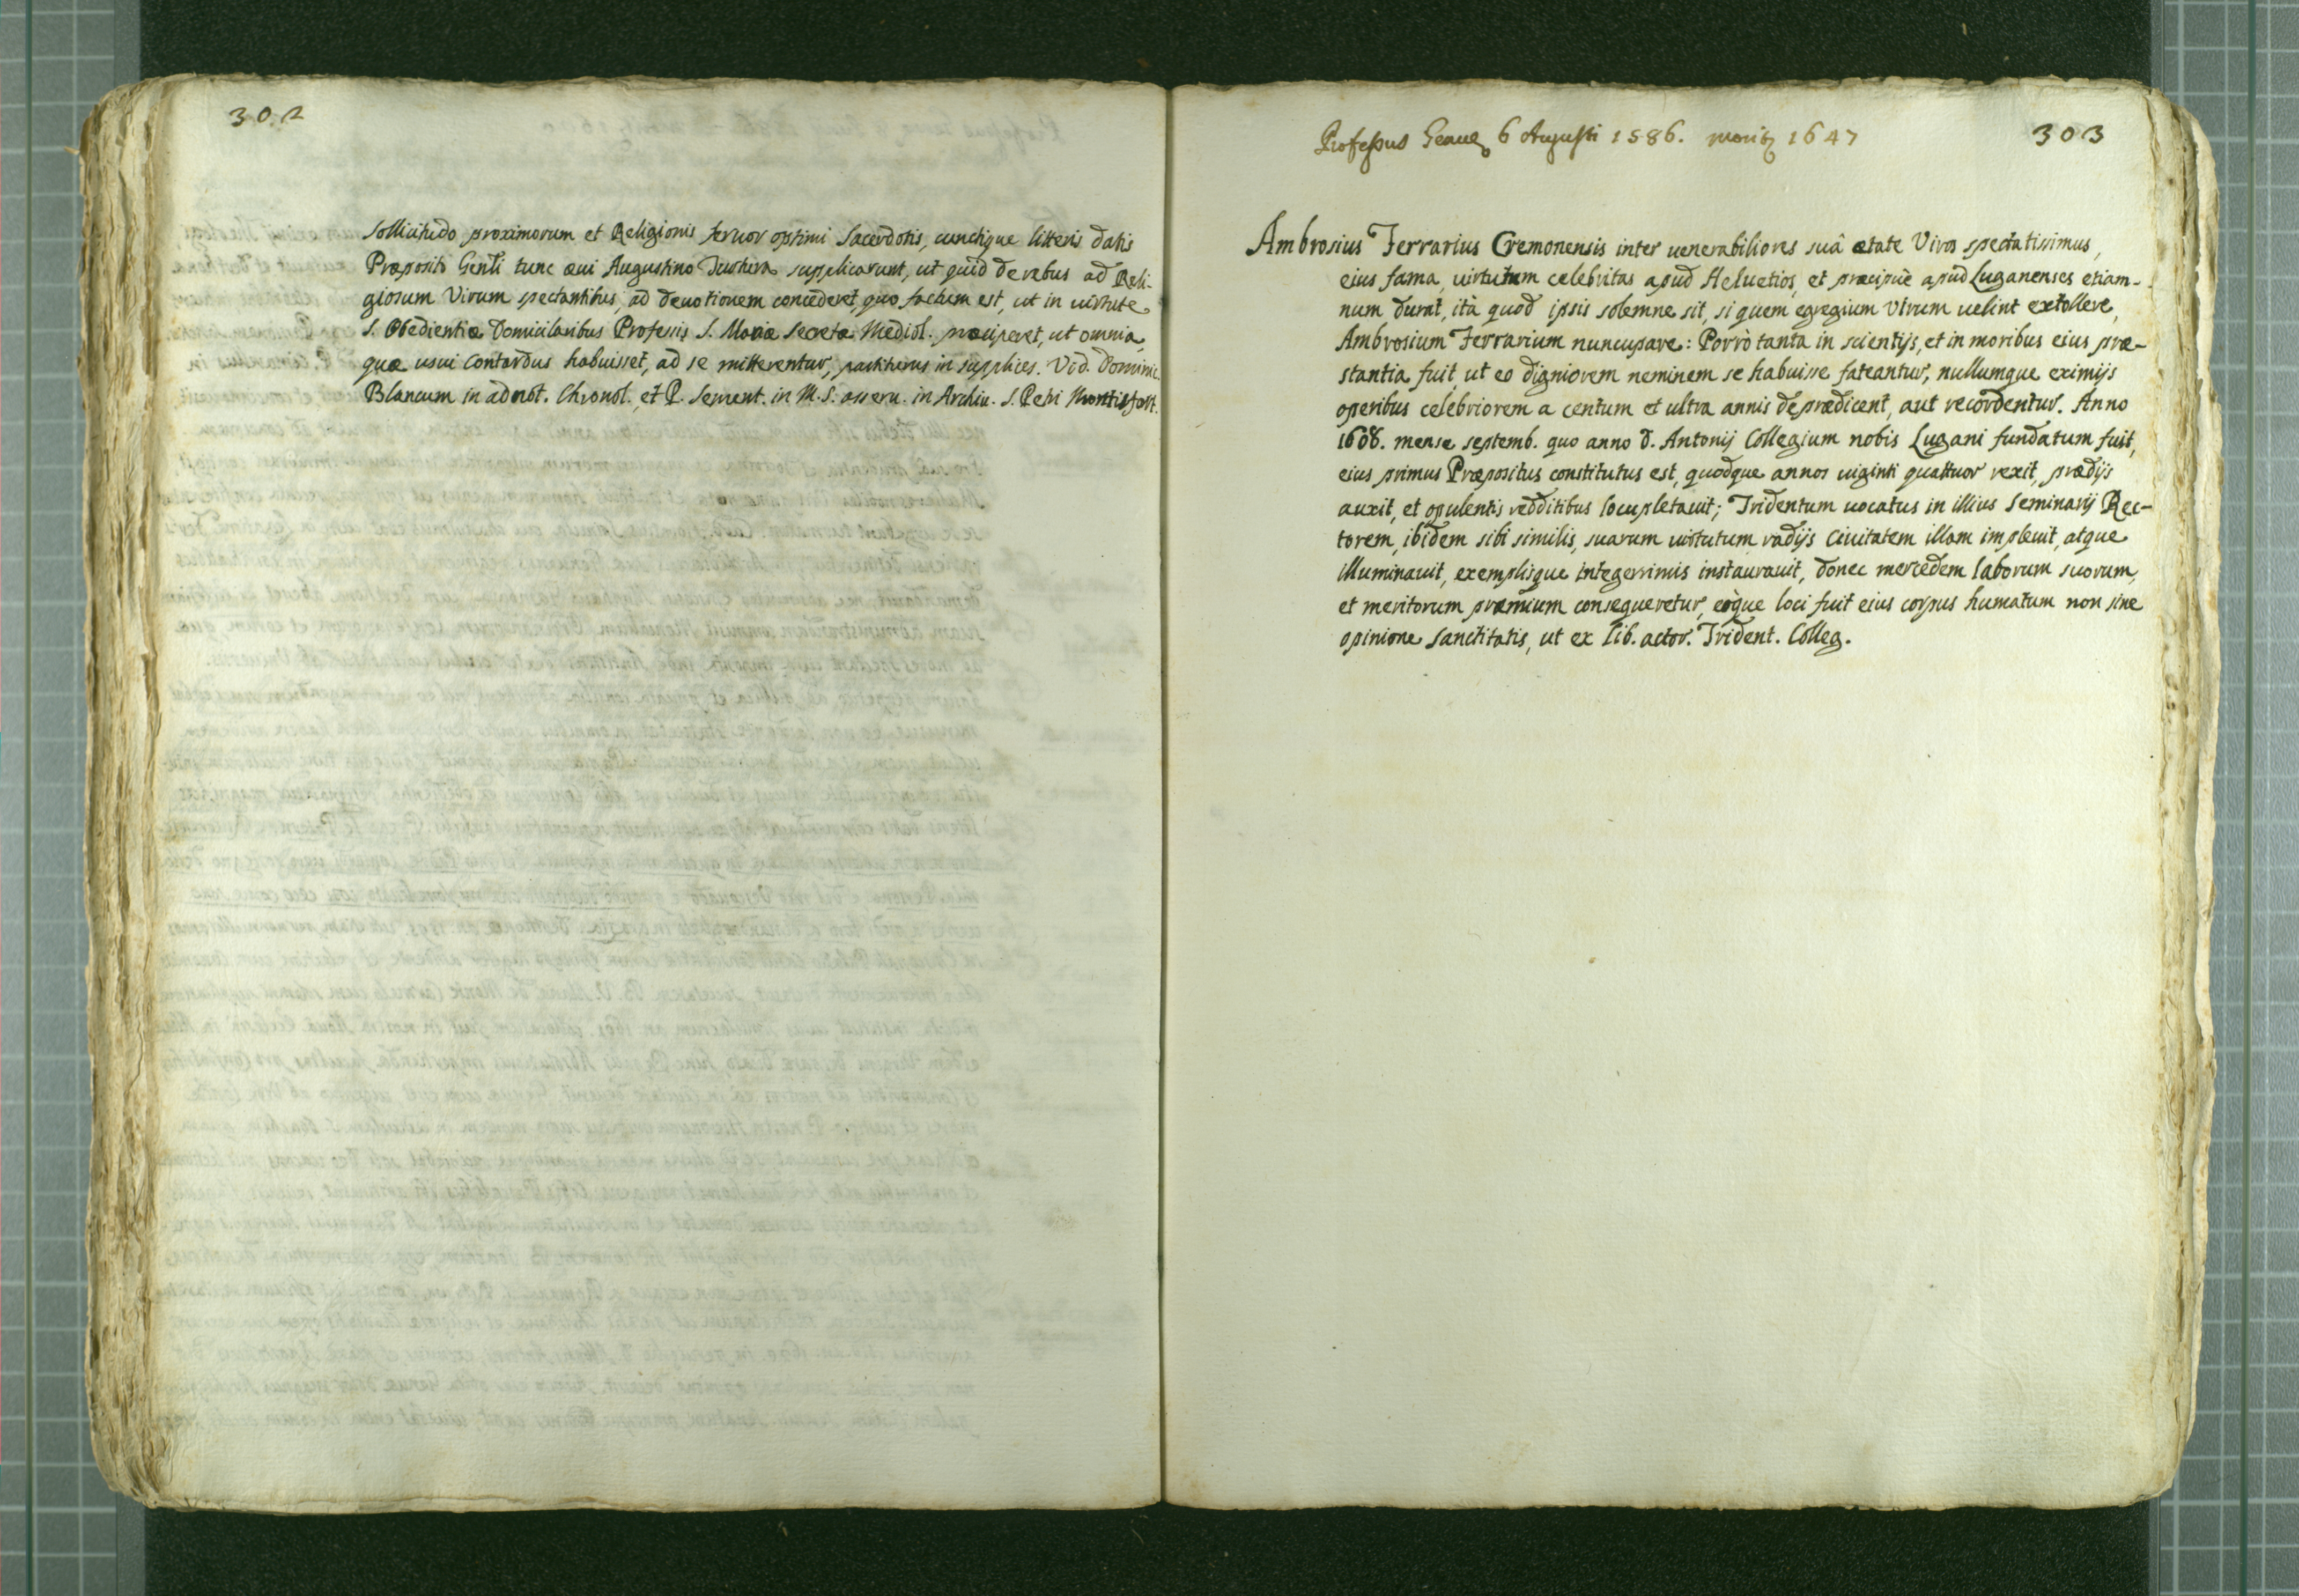 302
sollicitudo proximorum et Religionis feruor optimi Sacerdotis, cunctique litteris datis
Præposito Gen̄li tunc æui Augustino supplicarunt, ut quid de rebus ad Reli-
giosum Virum spectantibus, ad deuotionem concederet, quo factum est, ut in uirtute
S. Obedientiæ Domicilaribus Professis S. Mariæ Secretæ Mediol. præciperet, ut omnia,
quæ usui Contardus habuisset, ad se mitterentur, partiturus in supplices. Vid. Dominic.
Blancum in adnot. Chronol. et P. Sement. in M.S. asseru. in Archiu. S. Petri Montisfort.
303
Professus Genuę 6 Augusti 1586. 1647
Ambrosius Ferrarius Cremonensis inter uenerabiliores suâ ætate Viros spectatissimus,
eius fama, uirtutum celebritas apud Heluetios, et præcipuè apud Luganenses etiam-
num durat, ità quod ipsis solemne sit, si quem egregium Virum uelint extollere,
Ambrosium Ferrarium nuncupare: Porrò tanta in scientijs, et in moribus eius præ-
stantia fuit, ut eo digniorem neminem se habuisse fateantur, nullumque eximijs
operibus celebriorem a centum et ultra annis deprædicent, aut recordentur. Anno
1608. mense septemb. quo anno d. Antonij Collegium nobis Lugani fundatum fuit,
eius primus Præpositus constitutus est, quodque annos uiginti quattuor rexit, prædijs
auxit, et opulentis redditibus locupletauit; Tridentum uocatus in illius Seminarij Rec-
torem, ibidem sibi similis, suarum uirtutum radijs Ciuitatem illam impleuit, atque
illuminauit, exemplisque integerrimis instaurauit, donec mercedem laborum suorum,
et meritorum præmium consequeretur, eòque loci fuit eius corpus humatum non sine
opinione Sanctitatis, ut ex lib. actor. Trident. Colleg.